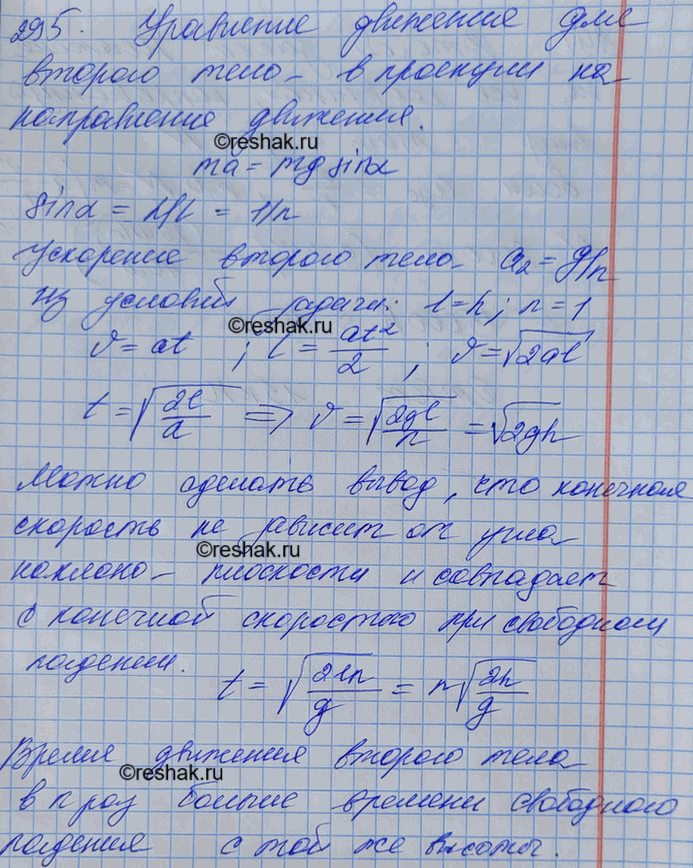 295. Уравнение движения для
второго тела в проекции на
направление движения.
©reshak.ru
ma = mg sinα
sinα = h/l = 1/n
Ускорение второго тела a₂ = g/n
из условий задачи: l=h; n=1
©reshak.ru
υ = at ; l = at²/2 ; υ = √2al
t = √(2l/a) => υ = √(2gl/n) = √2gh
Можно сделать вывод, что конечная
скорость не зависит от угла
©reshak.ru
наклона плоскости и совпадает
с конечной скоростью при свободном
падении.
t = √(2ln/g) = n√(2h/g)
Время движения второго тела
©reshak.ru
в n раз больше времени свободного
падения с той же высоты.